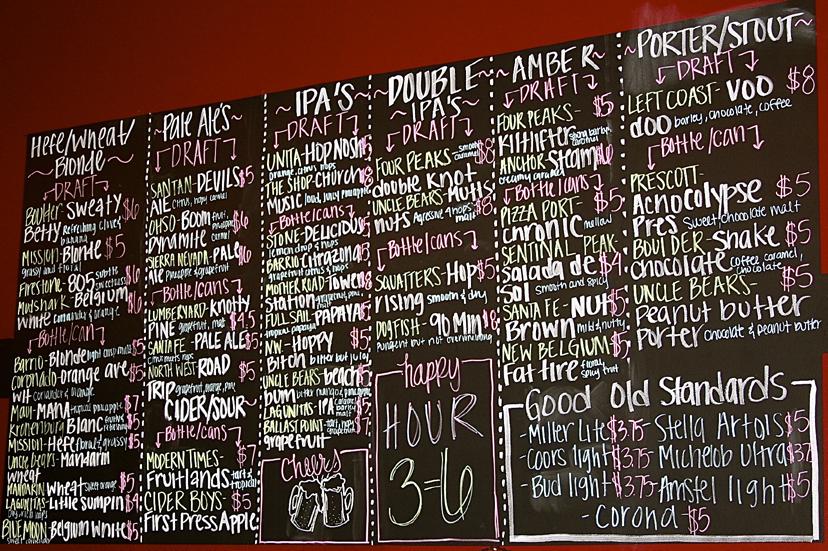 Hefe/Wheat/
Blonde
DRAFT
Boulder- Sweaty $6
Betty Refreshing cloves
banana
Mission- Blonde $5
grassy and floral
Firestone- 805 $6
Mudshark- Belgium $6
White
Bottle/can
Barrio- Blonde $5
Coronado- orange ave $5
wit- coriander & orange
Maui- MANA tropical pineapple $7
Kronenburg Blanc $5
Mission- Hefe $5
Uncle Bears- Mandarin
wheat
MANDARIN Wheat sweet orange $5
LAGUNITAS- Little Sumpin $4
BLUE MOON- Belgium White $5
Pale Ale's
DRAFT
SANTAN- DEVILS $5
ALE citrus,
OHSO- BOOM $6
Dynamite
SIERRA NEVADA- PALE $6
ale pineapple & grapefruit
Bottle/cans
LUMBERYARD- Knotty
PINE grapefruit, malt $4.5
SANTA FE- PALE ALE $5
citrus malts hops
NORTH WEST- ROAD $5
TRIP grapefruit, orange, pine
CIDER/SOUR
Bottle/cans
MODERN TIMES- $7
Fruitlands tart & tropical
CIDER BOYS- $5
First Press Apple
IPA'S
DRAFT
UNITA- HOP NOSH $5
orange, citrus, hops
THE SHOP- CHURCH $8
MUSIC
Bottle/cans
STONE- DELICIOUS $5
lemon drop & hops
BARRIO- Citrazona $5
grapefruit citrus & hops
MOTHER ROAD- Tower $8
Station
FULL SAIL- PAPAYA $5
tropical papaya
NW- Hoppy $5
Bitch bitter but juicy
UNCLE BEARS- beach $5
bum
LAGUNITAS- IPA $5
BALLAST POINT- $7
grapefruit
Cheers
DOUBLE
IPA'S
DRAFT
FOUR PEAKS- smooth caramel $8
double Knot
UNCLE BEARS- Mutts $8
nuts Agressive & hops malt
Bottle/cans
SQUATTERS- Hop $5
rising smooth & dry
DOGFISH- 90 Min $8
pungent but not overwhelming
happy
HOUR
3=6
AMBER
DRAFT
FOUR PEAKS- $5
Kiltlifter strong barley, caramel
ANCHOR Steam $6
creamy caramel
Bottle/cans
PIZZA PORT- $5
chronic mellow
SENTINAL PEAK-
Salada de $4
Sol smooth and spicy
SANTA FE- NUT $5
Brown mild & nutty
NEW BELGIUM $5
Fat tire floral, spicy fruit
PORTER/STOUT
DRAFT
LEFT COAST- VOO $8
doo barley, chocolate, coffee
Bottle/can
PRESCOTT-
Achocolypse $5
Pres sweet, chocolate malt
BOULDER- Shake $5
chocolate coffee, caramel, chocolate
UNCLE BEARS- $5
Peanut butter
porter chocolate & peanut butter
Good Old Standards
-Miller Lite $3.75 -Stella Artois $5
-Coors light $3.75 -Michelob Ultra $3.75
-Bud light $3.75 -Amstel light $5
-Corona $5